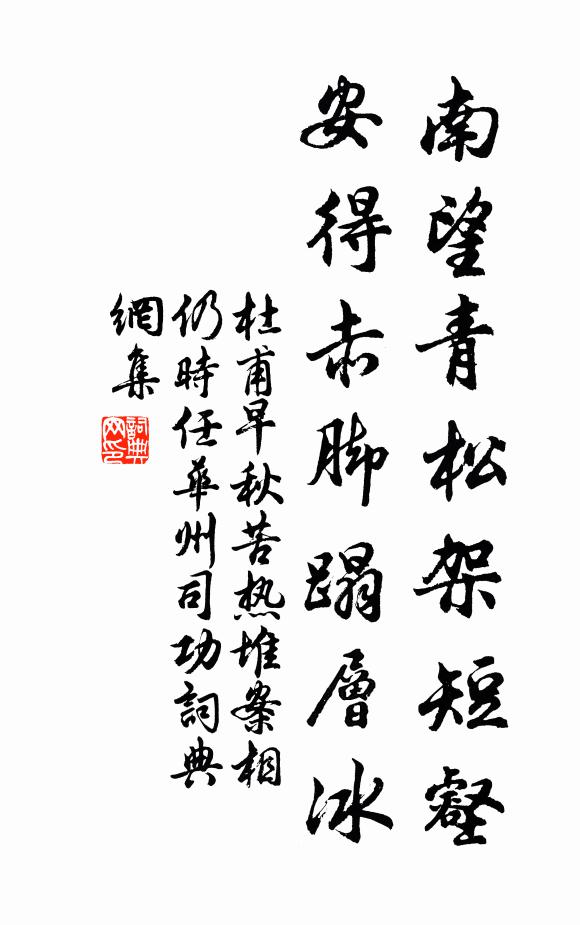 南望青松架短壑
安得赤脚蹋層冰
杜甫早秋苦热堆案相
仍時任華州司功詞典
網集
詞典
网印